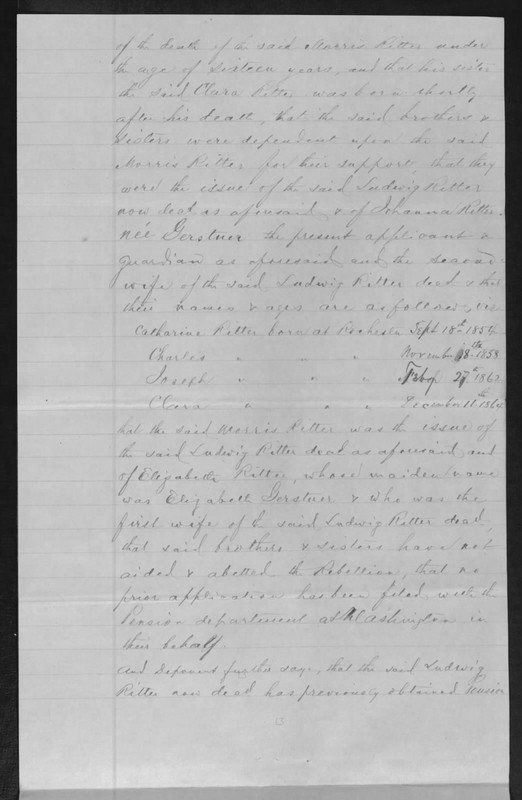 of the death of the said Morris Ritter under
the age of Sixteen years, and that his sister
the said Clara Ritter was born shortly
after his death, that the said brothers &
sisters were dependent upon the said
Morris Ritter for their support, that they
were the issue of the said Ludwig Ritter
now dead as aforesaid & of Johanna Ritter
née Gerstner the present applicant &
guardian as aforesaid and the second
wife of the said Ludwig Ritter dead & that
their names & ages are as follows, viz
Catharine Ritter born at Rochester Sept 18th 1854
Charles " " " November 18th 1858
Joseph " " " Feby 27th 1862
Clara " " " December 11th 1864
hat the said Morris Ritter was the issue of
the said Ludwig Ritter dead as aforesaid, and
of Elizabeth Ritter, whose maiden name
was Elizabeth Gerstner & who was the
first wife of the said Ludwig Ritter dead,
that said brothers & sisters have not
aided & abetted the Rebellion, that no
prior application has been filed with the
Pension department at Washington in
their behalf.
And Deponent further says, that the said Ludwig
Ritter now dead has previously obtained Pension